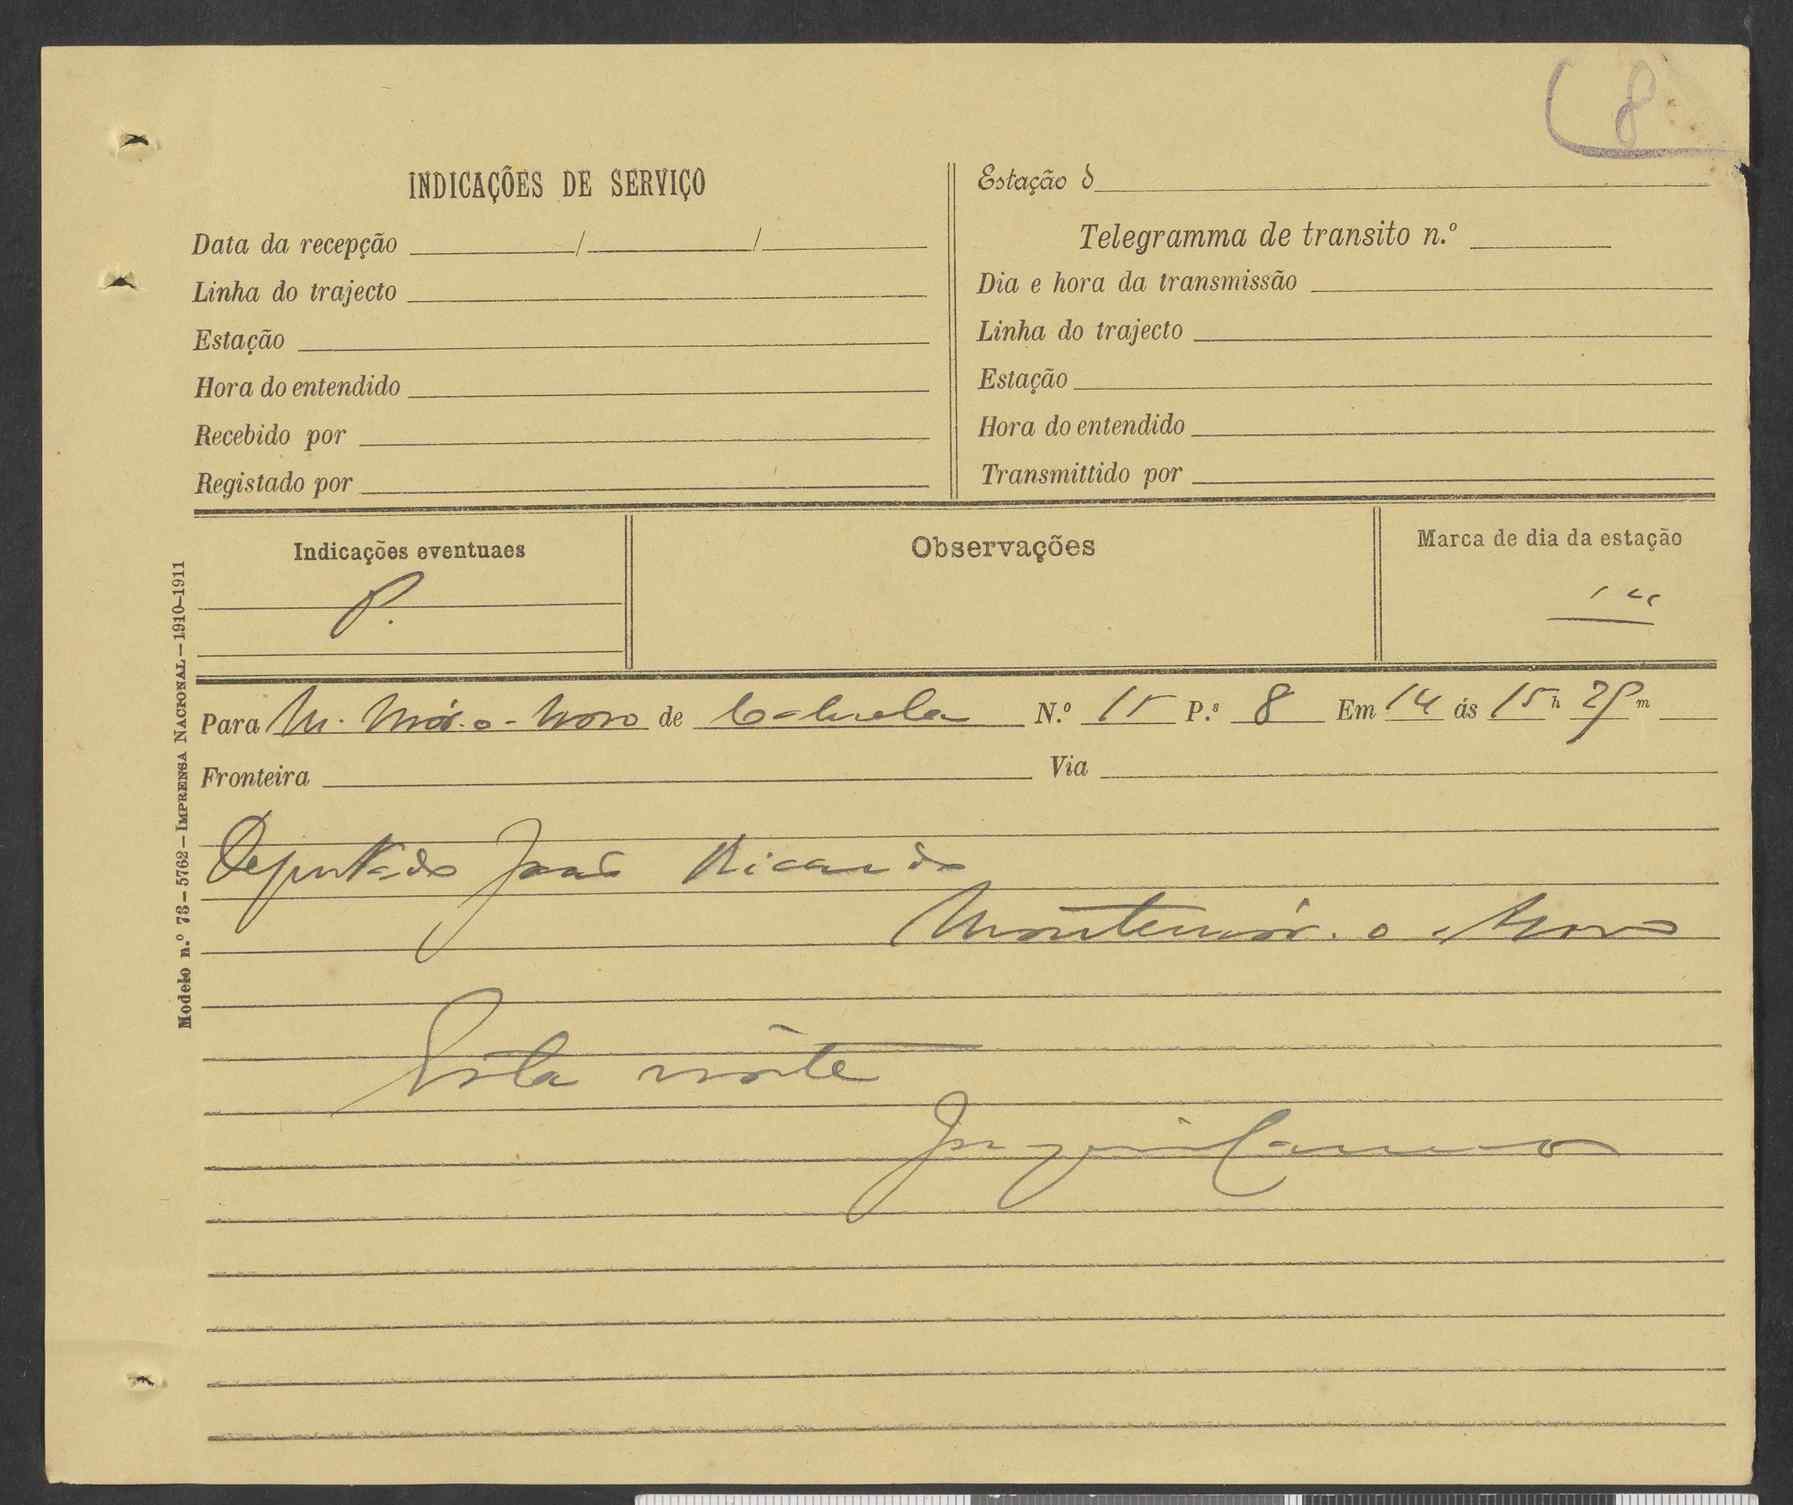 8
INDICAÇÕES DE SERVIÇO
Data da recepção / /
Linha do trajecto
Estação
Hora do entendido
Recebido por
Registado por
Estação d
Telegramma de transito n.º
Dia e hora da transmissão
Linha do trajecto
Estação
Hora do entendido
Transmittido por
Indicações eventuaes
P.
Observações
Marca de dia da estação
Modelo n.º 73 — 5762 — IMPRENSA NACIONAL — 1910-1911
Para M. Mór-o-Novo de Cabrela N.º 15 P.s 8 Em 14 ás 15 h 25 m
Fronteira Via
Deputado João Ricardo
Montemór-o-Novo
Esta noite